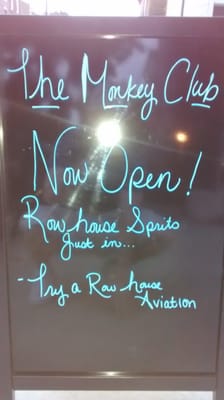 The Monkey Club
Now Open!
Row house Sprits
Just in...
- Try a Row house
Aviation